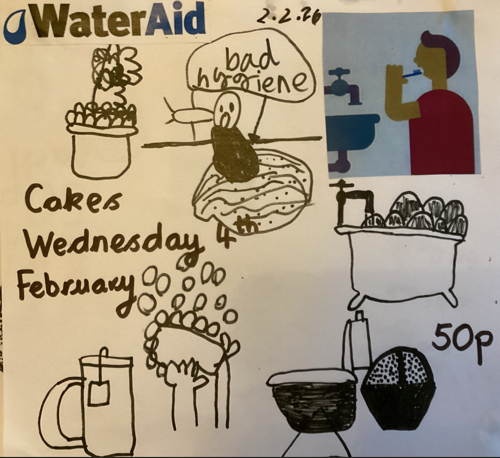 WaterAid
2.2.26
bad
hygiene
Cakes
Wednesday 4th
February
50p